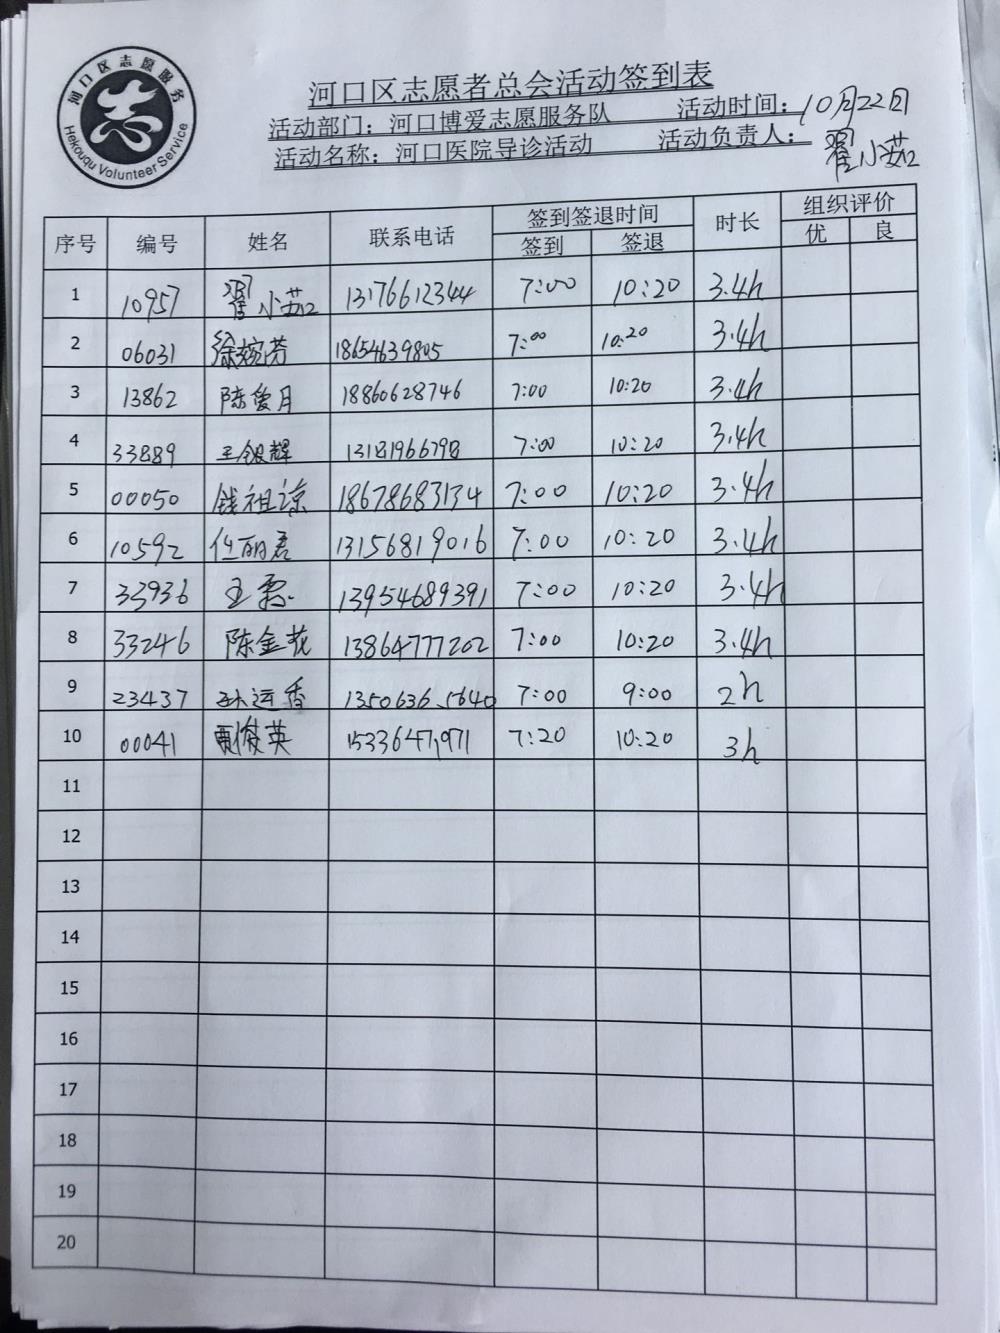 河口区志愿服务
Hekouqu Volunteer Service
河口区志愿者总会活动签到表
活动部门：河口博爱志愿服务队 活动时间：10月22日
活动名称：河口医院导诊活动 活动负责人：翟小茹
序号 编号 姓名 联系电话 签到签退时间 时长 组织评价
签到 签退 优 良
1 10957 翟小茹 13176612344 7:00 10:20 3.4h
2 06031 徐婉芳 18654639805 7:00 10:20 3.4h
3 13862 陈爱月 18860628746 7:00 10:20 3.4h
4 33889 王银辉 7:00 10:20 3.4h
5 00050 钱祖谅 18678683134 7:00 10:20 3.4h
6 10592 任丽君 13156819016 7:00 10:20 3.4h
7 33936 王 13954689391 7:00 10:20 3.4h
8 33246 陈金花 13864777202 7:00 10:20 3.4h
9 23437 孙运香 13506365640 7:00 9:00 2h
10 00041 俊英 15336471971 7:20 10:20 3h
11
12
13
14
15
16
17
18
19
20